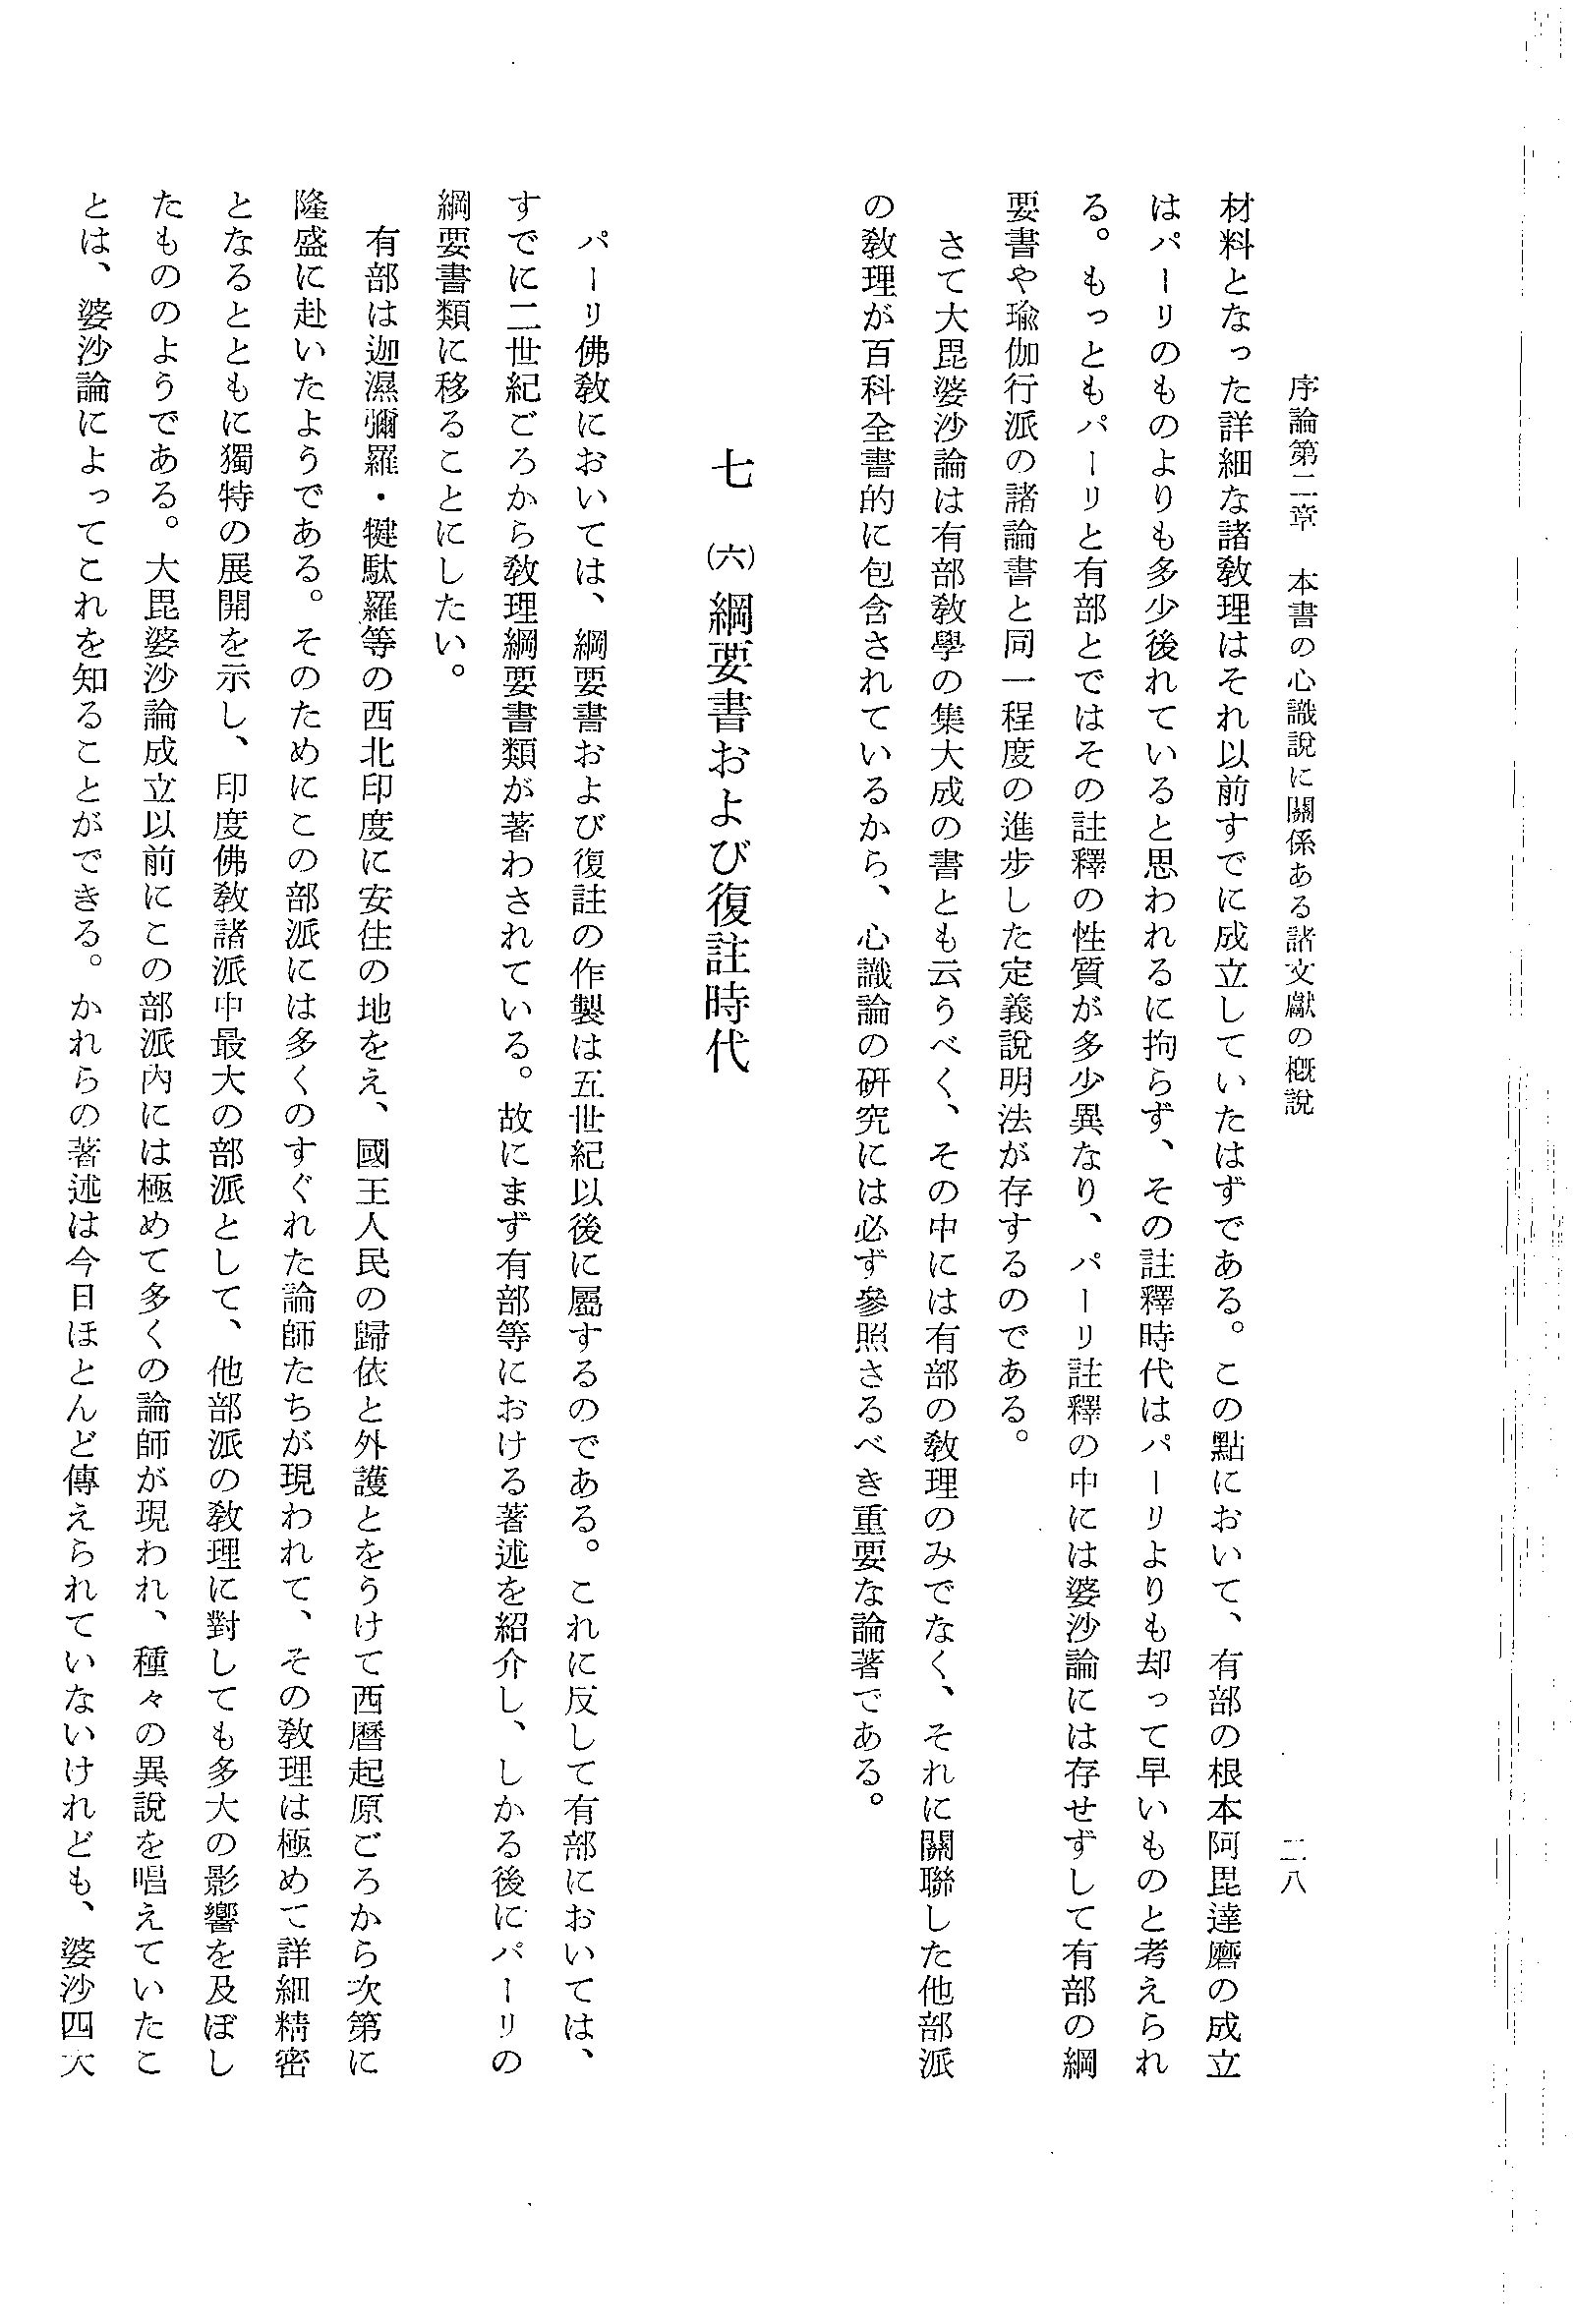 序論第二章　本書の心識說に關係ある諸文獻の槪說
二八
材料となった詳細な諸敎理はそれ以前すでに成立していたはずである。この點において、有部の根本阿毘達磨の成立
はパーリのものよりも多少後れていると思われるに拘らず、その註釋時代はパーリよりも却って早いものと考えられ
る。もっともパーリと有部とではその註釋の性質が多少異なり、パーリ註釋の中には婆沙論には存せずして有部の綱
要書や瑜伽行派の諸論書と同一程度の進步した定義說明法が存するのである。
さて大毘婆沙論は有部敎學の集大成の書とも云うべく、その中には有部の敎理のみでなく、それに關聯した他部派
の敎理が百科全書的に包含されているから、心識論の硏究には必ず參照さるべき重要な論著である。
七　㈥ 綱要書および復註時代
パーリ佛敎においては、綱要書および復註の作製は五世紀以後に屬するのである。これに反して有部においては、
すでに二世紀ごろから敎理綱要書類が著わされている。故にまず有部等における著述を紹介し、しかる後にパーリの
綱要書類に移ることにしたい。
有部は迦濕彌羅・犍駄羅等の西北印度に安住の地をえ、國王人民の歸依と外護とをうけて西曆起原ごろから次第に
隆盛に赴いたようである。そのためにこの部派には多くのすぐれた論師たちが現われて、その敎理は極めて詳細精密
となるとともに獨特の展開を示し、印度佛敎諸派中最大の部派として、他部派の敎理に對しても多大の影響を及ぼし
たもののようである。大毘婆沙論成立以前にこの部派內には極めて多くの論師が現われ、種々の異說を唱えていたこ
とは、婆沙論によってこれを知ることができる。かれらの著述は今日ほとんど傳えられていないけれども、婆沙四大